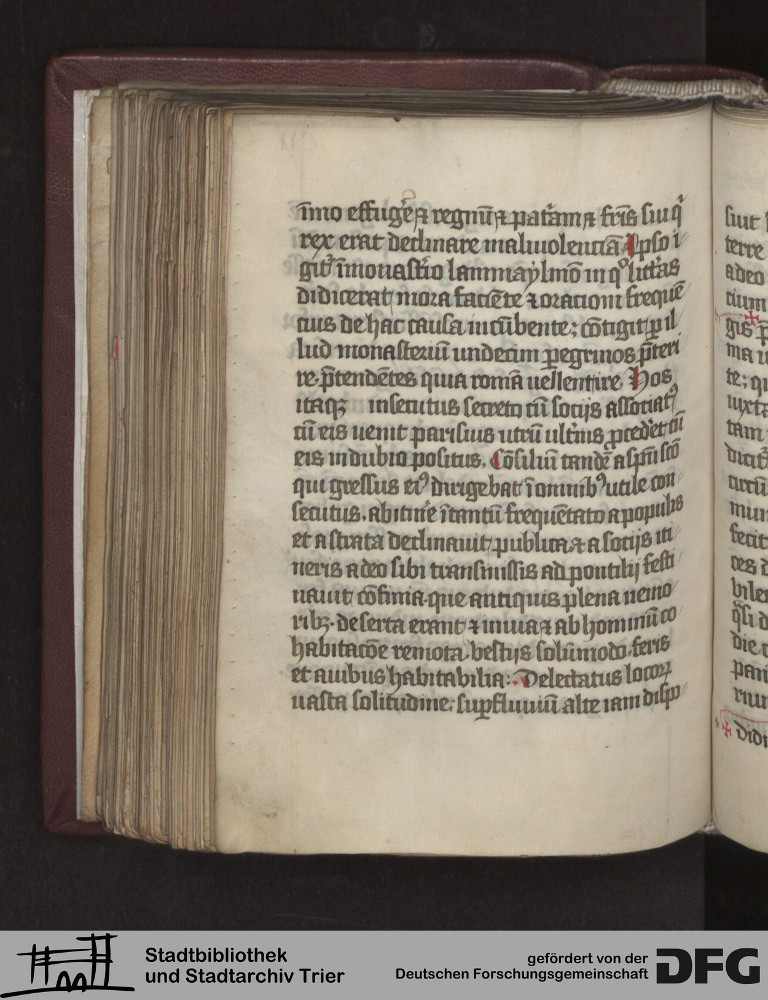 īmo effug̕e ⁊ regnū ⁊ pat͛am ⁊ fr̄is sui q̍
rex erat declinare maliuolenciā Ipso i
git͛ ī monast͛io lanmaylmō in qͦ litt͛as
didicerat mora faciēte ⁊ orationi frequē
cius de hac causa incūbente; cōtigit ꝑ il
lud monasteriū undecim ꝑegrinos p̄teri
re p̄tendētes quia romā uellent ire. Hos
itaqꝫ insecutus secreto cū socijs associatꝰ
cū eis uenit parisius utrū ult͛ius ꝓced͛et cū
eis in dubio positus. Cōsiliū tandē a sp̄u sc̄o
qui gressus eiꝰ dirigebat ī omnibꝰ utile con
secutus. ab itin͛e ītantū frequētato a populis
et a strata declinauit publica ⁊ a socijs iti
neris a deo sibi transmissis ad pontilij festi
nauit cōfinia que antiquis plena nemo
ribꝫ deserta erant ⁊ inuia ⁊ ab hominū co
habitacōe remota bestijs solūmodo feris
et auibus habitabilia: Delectatus locoꝝ
uasta solitudine; sup fluuiū alte iam dispo
siut
terre
adeo
cium
gis
ma
te; qu
iuxta
tam
dicit͛
circū
mun
fecit
ces d
bile
q̍si d
die
pan
riun
didi
Stadtbibliothek
und Stadtarchiv Trier
gefördert von der
Deutschen Forschungsgemeinschaft
DFG